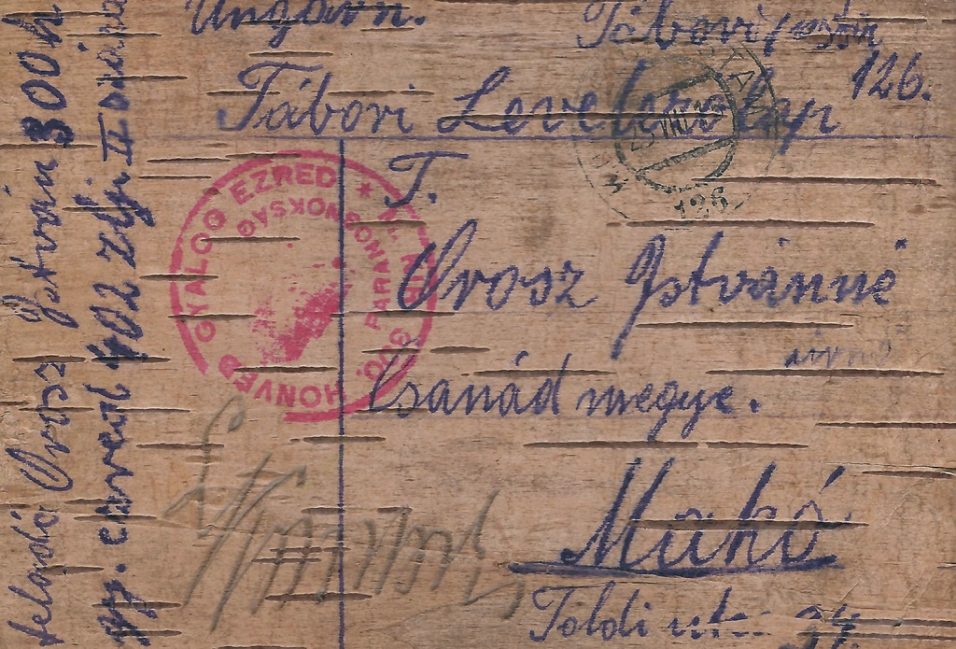 Ungarn. Tábori posta
126.
Tábori Levelezőlap
T.
Orosz Istvánné
úrnő
Csanád megye.
Makó
Toldi utca 34
feladó Orosz István 300 h
gy. ezred 402 zlj. II
M. KIR. 300. HONVÉD GYALOG EZRED
PARANCSNOKSÁG
126